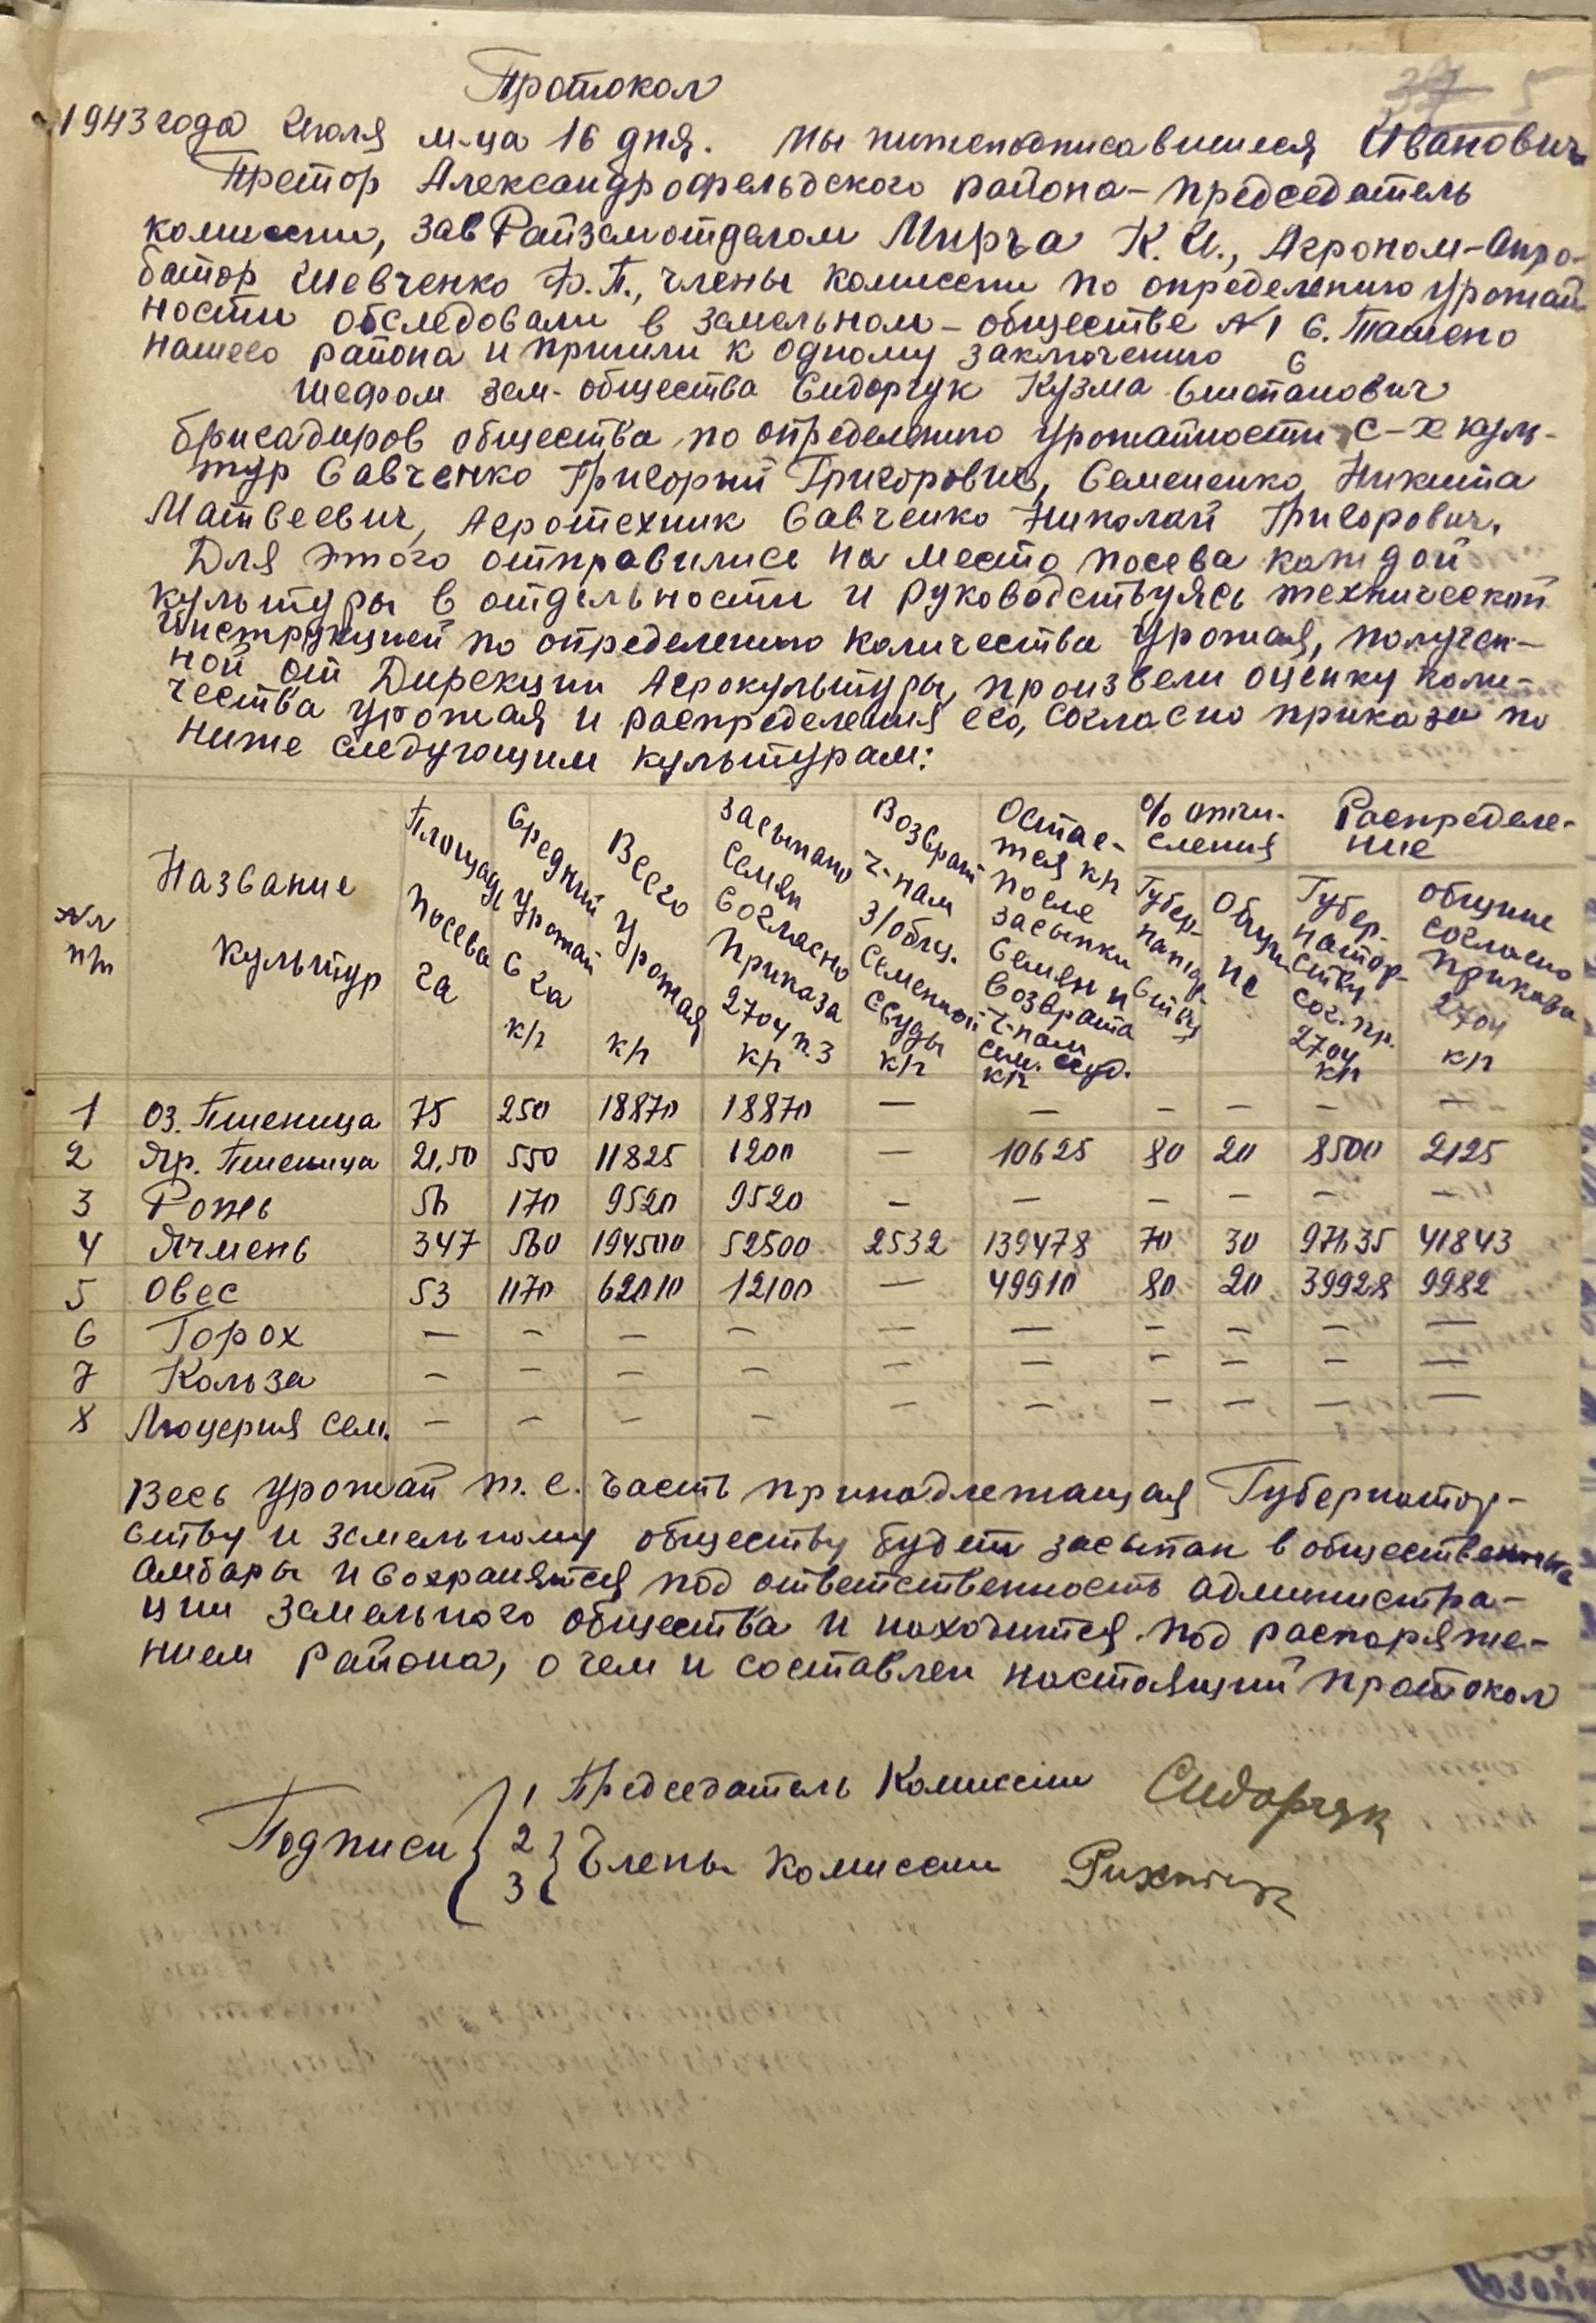 Протокол
37 5
1943 года Июля м-ца 16 дня. Мы нижеподписавшиеся Иванович
Претор Александрофельдского района – председатель
комиссии, зав Райземотделом Мирза К. И., Агроном-Апро-
батор Шевченко Ф. П., члены комиссии по определению урожай
ности обследовали в земельном – обществе №1 с. Ташено
нашего района и пришли к одному заключению с
шефом зем- общества Сидорчук Кузма Степанович
бригадиров общества по определению урожайности с-х куль-
тур Савченко Григорий Григорович, Семененко Никита
Матвеевич, Агротехник Савченко Николай Григорович.
Для этого отправились на место посева каждой
культуры в отдельности и руководствуясь технической
инструкцией по определению количества урожая, получен-
ной от Дирекции Агрокультуры, произвели оценку коли-
чества урожая и распределения его, согласно приказа по
ниже следующим культурам:
№№ пп | Название культур | Площадь посева га | Средний урожай с га кгр | Всего урожая кгр | Засыпано семян согласно приказа 2704 п. 3 кгр | Возврат ч-нам з/общ. семенной ссуды кгр | Остае-тся кгр после засыпки семян и возврата ч-нам сем. ссуд. кгр | % отчи-сления | Распределе-ние
Губер-натор ству | Общи не | Губер-натор-ству сог. пр. 2704 кгр | общине согласно приказа 2704 кгр
1 Оз. Пшеница 75 250 18870 18870 — — — — — —
2 Яр. Пшеница 21,50 550 11825 1200 — 10625 80 20 8500 2125
3 Рожь 56 170 9520 9520 — — — — — —
4 Ячмень 347 560 194500 52500 2532 139478 70 30 97635 41843
5 Овес 53 1170 62010 12100 — 49910 80 20 39928 9982
6 Горох — — — — — — — — — —
7 Кольза — — — — — — — — — —
8 Люцерна сем. — — — — — — — — — —
Весь урожай т. е. часть принадлежащая Губернатор-
ству и земельному обществу будет засыпан в общественные
амбары и сохраняится под ответственность администра-
ции земельного общества и находится под распоряже-
нием района, о чем и составлен настоящий протокол
Подписи { 1 Председатель Комиссии Сидорчук
2
3 } Члены комиссии